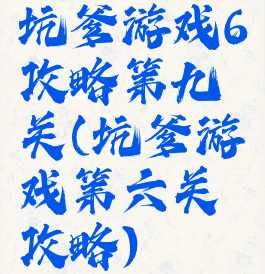 坑爹游戏6
攻略第九
关(坑爹游
戏第六关
攻略)